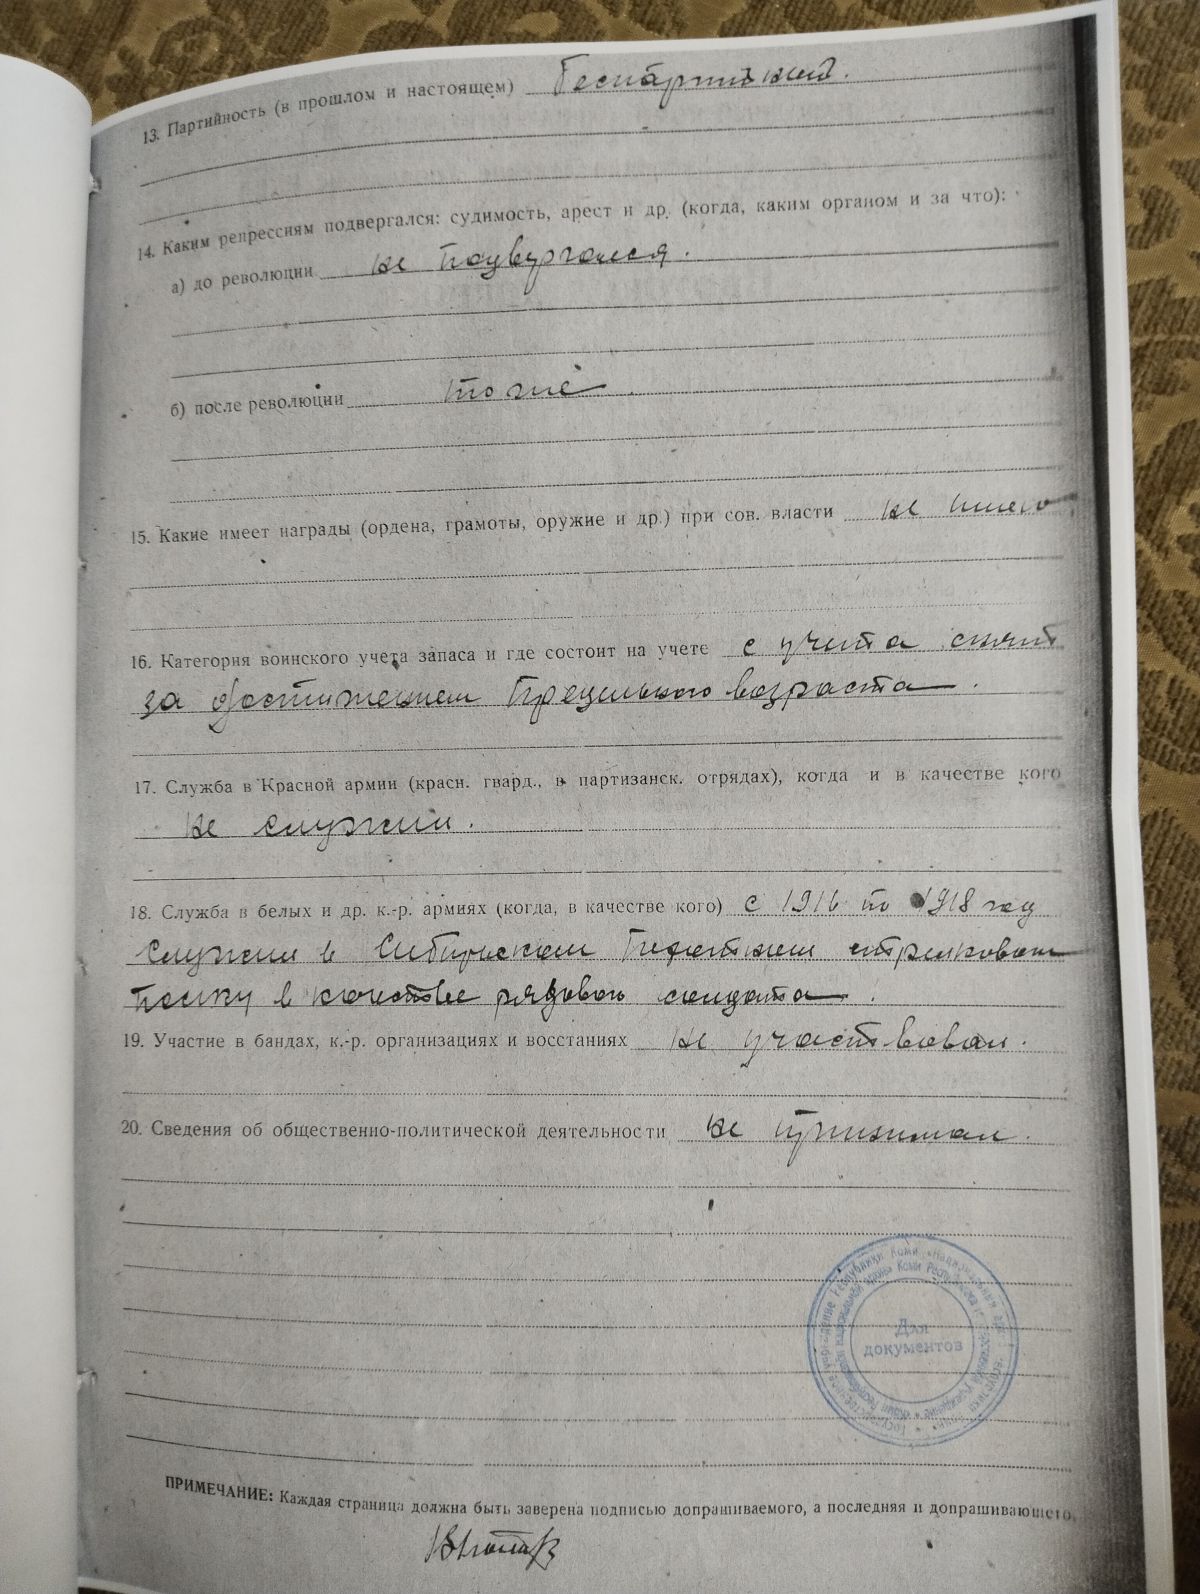 13. Партийность (в прошлом и настоящем) Беспартийный.
14. Каким репрессиям подвергался: судимость, арест и др. (когда, каким органом и за что):
а) до революции не подвергался.
б) после революции тоже
15. Какие имеет награды (ордена, грамоты, оружие и др.) при сов. власти не имею
16. Категория воинского учета запаса и где состоит на учете с учета снят
за достижением предельного возраста.
17. Служба в Красной армии (красн. гвард., в партизанск. отрядах), когда и в качестве кого
не служил.
18. Служба в белых и др. к.-р. армиях (когда, в качестве кого) с 1916 по 1918 год
служил в Сибирском стрелковом
полку в качестве рядового солдата.
19. Участие в бандах, к.-р. организациях и восстаниях не участвовал.
20. Сведения об общественно-политической деятельности не принимал.
Для
документов
ПРИМЕЧАНИЕ: Каждая страница должна быть заверена подписью допрашиваемого, а последняя и допрашивающего.